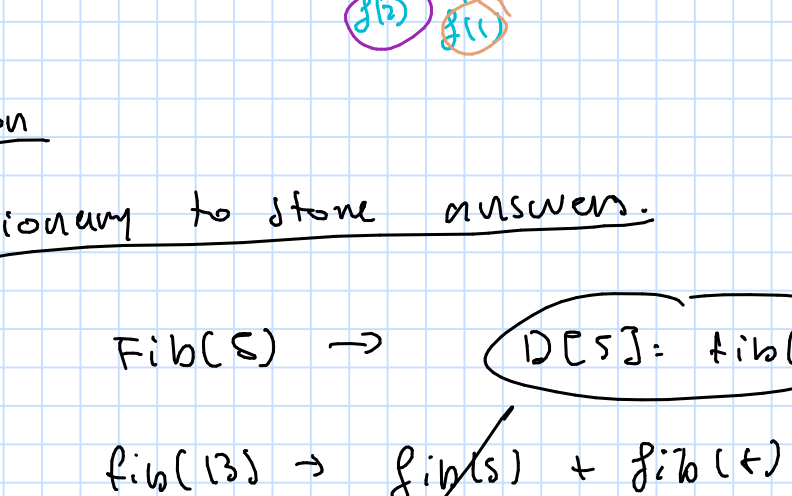 f(2) f(1)
on
ionary to store answers.
Fib(5) → D[5]: fib(
fib(13) → fib(5) + fib(t)